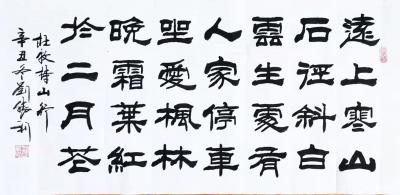 遠上寒山
石徑斜白
雲生處有
人家停車
坐愛楓林
晚霜葉紅
於二月花
杜牧詩山行
辛丑冬劉利